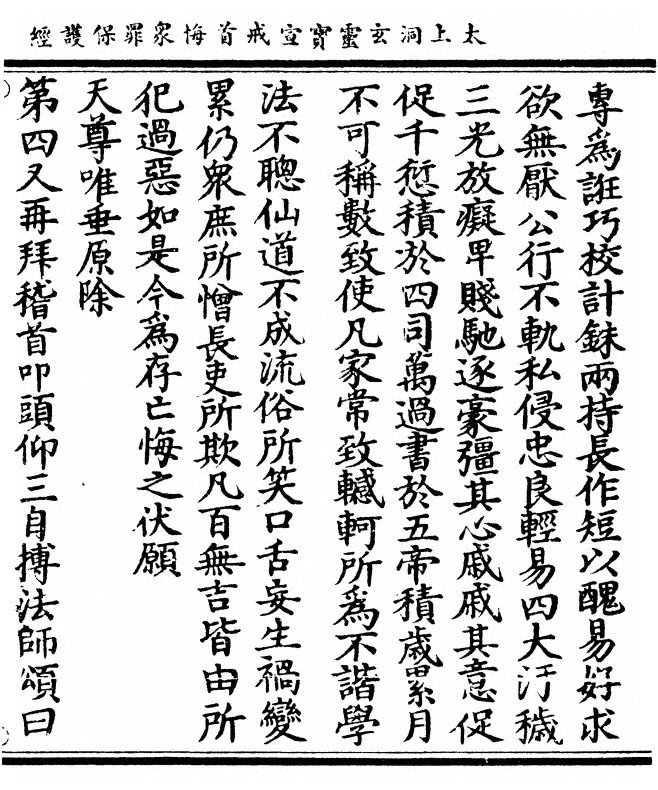 太上洞玄靈寶宣戒首悔眾罪保護經
專為誑巧校計銖兩持長作短以醜易好求
欲無厭公行不軌私侵忠良輕易四大汙穢
三光放癡卑賤馳逐豪彊其心戚戚其意促
促千愆積於四司萬過書於五帝積歲累月
不可稱數致使凡家常致轗軻所為不諧學
法不聰仙道不成流俗所笑口舌妄生禍變
累仍眾庶所憎長吏所欺凡百無吉皆由所
犯過惡如是今為存亡悔之伏願
天尊唯垂原除
第四又再拜稽首叩頭仰三自搏法師頌曰